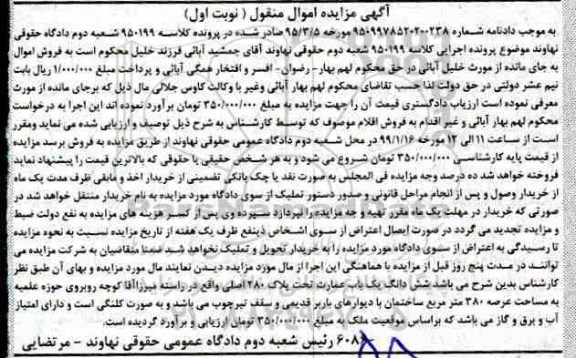 آگهی مزایده اموال منقول ( نوبت اول)
به موجب دادنامه شماره ۹۵۰۹۹۷۸۵۲۰۲۰۰۲۳۸ مورخه ۹۵/۳/۵ صادر شده در پرونده کلاسه ۹۵۰۱۹۹ شعبه دوم دادگاه حقوقی
نهاوند موضوع پرونده اجرایی کلاسه ۹۵۰۱۹۹ شعبه دوم حقوقی نهاوند آقای جمشید آبائی فرزند خلیل محکوم است به فروش اموال
به جای مانده از مورث خلیل آبائی در حق محکوم لهم بهار- رضوان- افسر و افتخار همگی آبائی و پرداخت مبلغ ۱/۰۰۰/۰۰۰ ریال بابت
نیم عشر دولتی در حق دولت لذا حسب تقاضای محکوم لهم بهار آبائی وغیر با وکالت کاوس جلالی مال ذیل که برجای مانده از مورث
معرفی نموده است ارزیاب دادگستری قیمت آن را جهت مزایده به مبلغ ۳۵۰/۰۰۰/۰۰۰ تومان برآورد نموده اند این اجرا به درخواست
محکوم لهم بهار آبائی و غیر اقدام به فروش اقلام موصوف که توسط کارشناس به شرح ذیل توصیف و ارزیابی شده می نماید ومقرر
است از ساعت ۱۱ الی ۱۲ مورخه ۹۹/۱/۱۶ در محل شعبه دوم دادگاه عمومی حقوقی نهاوند از طریق مزایده به فروش برسد مزایده
از قیمت پایه کارشناسی ۳۵۰/۰۰۰/۰۰۰ تومان شروع می شود و به هر شخص حقیقی یا حقوقی که بالاترین قیمت را پیشنهاد نماید
فروخته خواهد شد ده درصد وجه مزایده فی المجلس به صورت نقد یا چک بانکی تضمینی از خریدار اخذ و مابقی ظرف مدت یک ماه
از خریدار وصول و پس از انجام مراحل قانونی و صدور دستور تملیک از سوی دادگاه مورد مزایده به نام خریدار منتقل خواهد شد در
صورتی که خریدار در مهلت یک ماه مقرر تهیه و جه مزایده را نپردازد سپرده وی پس از کسر هزینه های مزایده به نفع دولت ضبط
و مزایده تجدید می گردد در صورت ایصال اعتراض از سوی اشخاص ذینفع ظرف یک هفته از تاریخ مزایده نسبت به نحوه مزایده
تا رسیدگی به اعتراض از سوی دادگاه مورد مزایده را به خریدار تحویل و تملیک نخواهد شد ضمنا متقاضیان به شرکت مزایده می
توانند در مدت پنج روز قبل از مزایده با هماهنگی این اجرا از مال مورد مزایده دیدن نمایند مال مورد مزایده و بهای آن طبق نظر
کارشناس بدین شرح می باشد شش دانگ یک باب عمارت تحت پلاک ۲۸۰ اصلی واقع در راسته میرزاآقا کوچه روبروی حوزه علمیه
به مساحت عرصه ۳۸۰ متر مربع ساختمان با دیوارهای باربر قدیمی و سقف تیرچوب می باشد و به صورت کلنگی است و دارای امتیاز
آب و برق و گاز می باشد که براساس موقعیت ملک به مبلغ ۳۵۰/۰۰۰/۰۰۰ تومان ارزیابی و برآورد گردیده است.
رئیس شعبه دوم دادگاه عمومی حقوقی نهاوند - مرتضایی